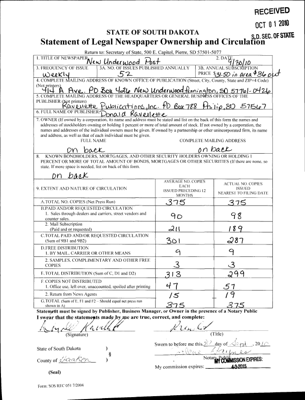 RECEIVED
OCT 01 2010
S.D. SEC. OF STATE
STATE OF SOUTH DAKOTA
Statement of Legal Newspaper Ownership and Circulation
Return to: Secretary of State, 500 E. Capitol, Pierre, SD 57501-5077
1. TITLE OF NEWSPAPER New Underwood Post
2. DATE 9/30/10
3. FREQUENCY OF ISSUE Weekly
3A. NO. OF ISSUES PUBLISHED ANNUALLY 52
3B. ANNUAL SUBSCRIPTION PRICE
4. COMPLETE MAILING ADDRESS OF KNOWN OFFICE OF PUBLICATION (Street, City, County, State and ZIP+4 Code) (Not printers)
A Ave. PO Box 426 New Underwood
5. COMPLETE MAILING ADDRESS OF THE HEADQUARTERS OR GENERAL BUSINESS OFFICES OF THE PUBLISHER (Not printer)
Ravellette Publications, Inc. PO Box 788 Philip, SD 57567
6. PUBLISHER FULL NAME Donald Ravellette
7. OWNER (If owned by a corporation, its name and address must be stated and also list on the back of this form the names and addresses of stockholders owning or holding 1 percent or more of total amount of stock. If not owned by a corporation, the names and addresses of the individual owners must be given. If owned by a partnership or other unincorporated firm, its name and address, as well as that of each individual must be given.
FULL NAME
COMPLETE MAILING ADDRESS
on back
on back
8. KNOWN BONDHOLDERS, MORTGAGES, AND OTHER SECURITY HOLDERS OWNING OR HOLDING 1 PERCENT OR MORE OF TOTAL AMOUNT OF BONDS, MORTGAGES OR OTHER SECURITIES
on back
9. EXTENT AND NATURE OF CIRCULATION
AVERAGE NO. COPIES EACH ISSUED PRECEDING 12 MONTHS
ACTUAL NO. COPIES ISSUED NEAREST TO FILING DATE
A. TOTAL NO. COPIES (Net Press Run) 375 375
B. PAID AND/OR REQUESTED CIRCULATION
1. Sales through dealers and carriers, street vendors and counter sales. 90 98
2. Mail Subscription (Paid and or requested) 211 189
C. TOTAL PAID AND/OR REQUESTED CIRCULATION (Sum of 9B1 and 9B2) 301 287
D. FREE DISTRIBUTION
1. BY MAIL, CARRIER OR OTHER MEANS 9 9
2. SAMPLES, COMPLIMENTARY AND OTHER FREE COPIES 3 3
E. TOTAL DISTRIBUTION (Sum of C, D1 and D2) 313 299
F. COPIES NOT DISTRIBUTED
1. Office use, left over, unaccounted, spoiled after printing 47 57
2. Return from News Agents 15 19
G. TOTAL (Sum of E, F1 and F2 - Should equal net press run shown in A) 375 375
Statement must be signed by Publisher, Business Manager, or Owner in the presence of a Notary Public
I swear that the statements made by me are true, correct, and complete:
(Signature)
(Title)
State of South Dakota )
County of )
Sworn to before me this day of Sept. 2010
Notary Public
MY COMMISSION EXPIRES:
My commission expires:
(Seal)
Form: SOS REC 051 7/2008